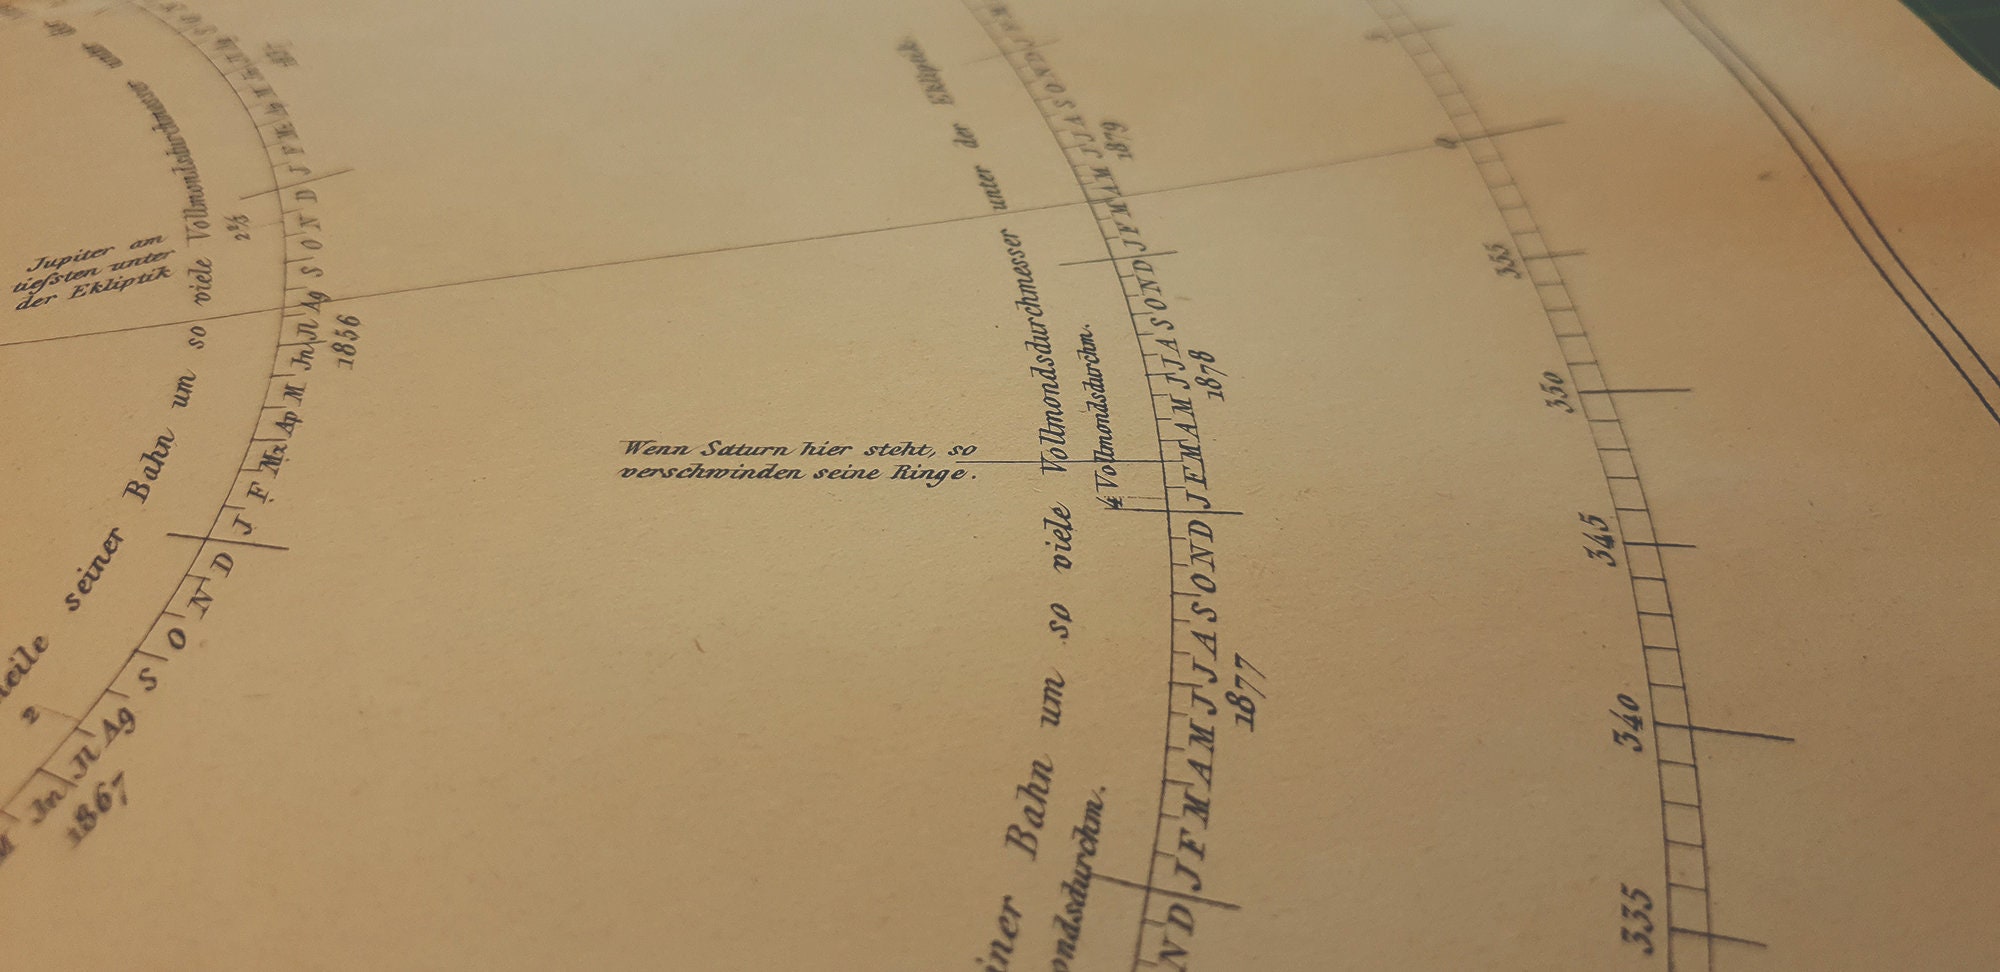 Jupiter am
tiefsten unter
der Ekliptik
seiner Bahn um so viele Vollmondsdurchmesser
2
2⅔
J F Mz Ap M Jn Jl Ag S O N D
1856
Jn Jl Ag S O N D
1867
Wenn Saturn hier steht, so
verschwinden seine Ringe.
Bahn um so viele Vollmondsdurchmesser unter der Ekliptik
¼ Vollmondsdurchm.
N D
J F M A M J J A S O N D
1877
J F M A M J J A S O N D
1878
J F M A M J J A S O N D
1879
0
355
350
345
340
335